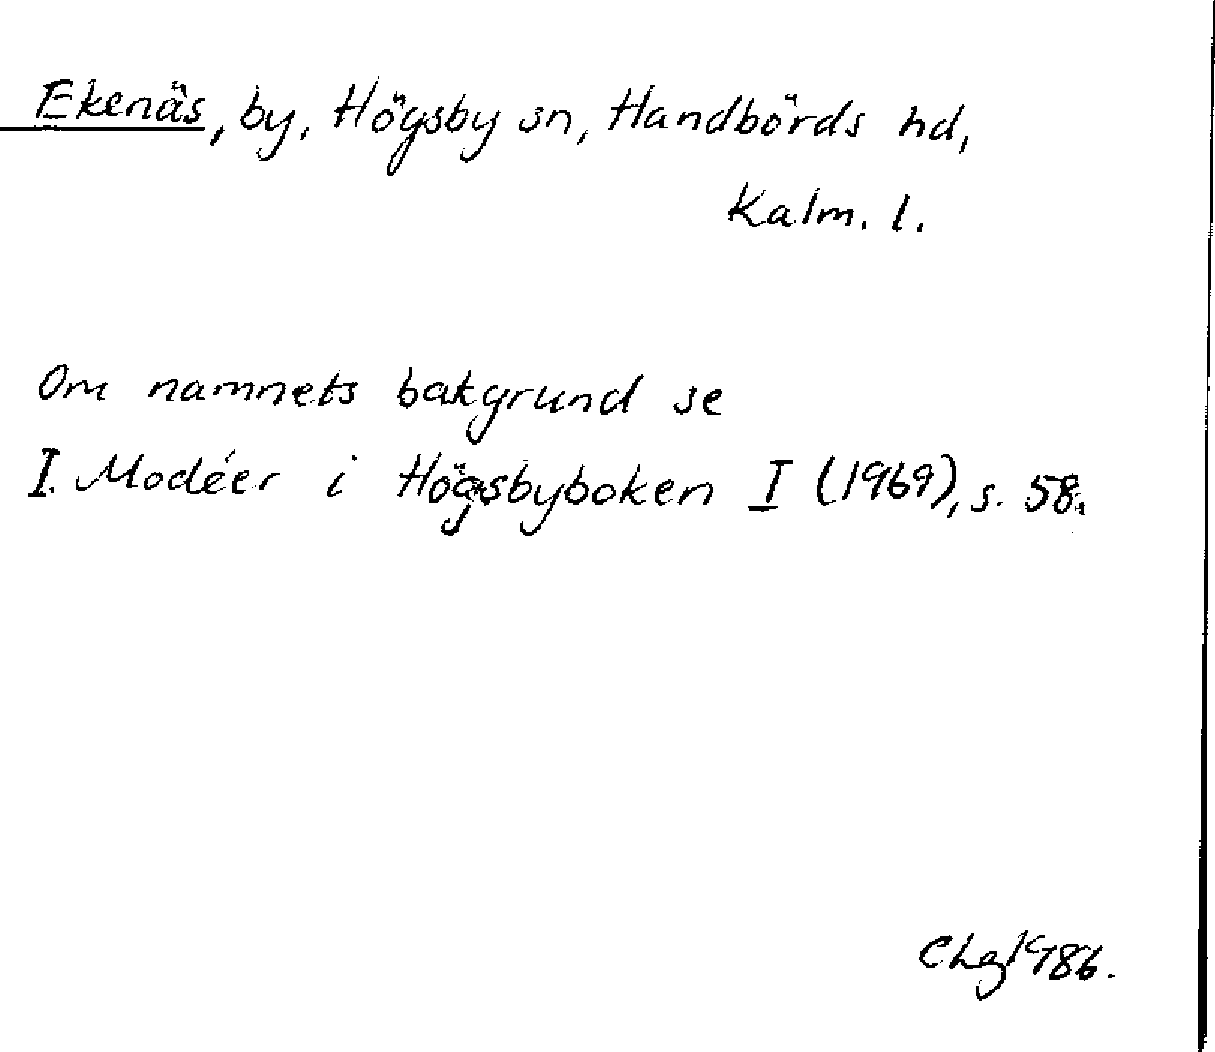 Ekenäs, by, Högsby sn, Handbörds hd,
Kalm. l.
Om namnets bakgrund se
I. Modéer i Högsbyboken I (1969), s. 58.
Chg 1986.